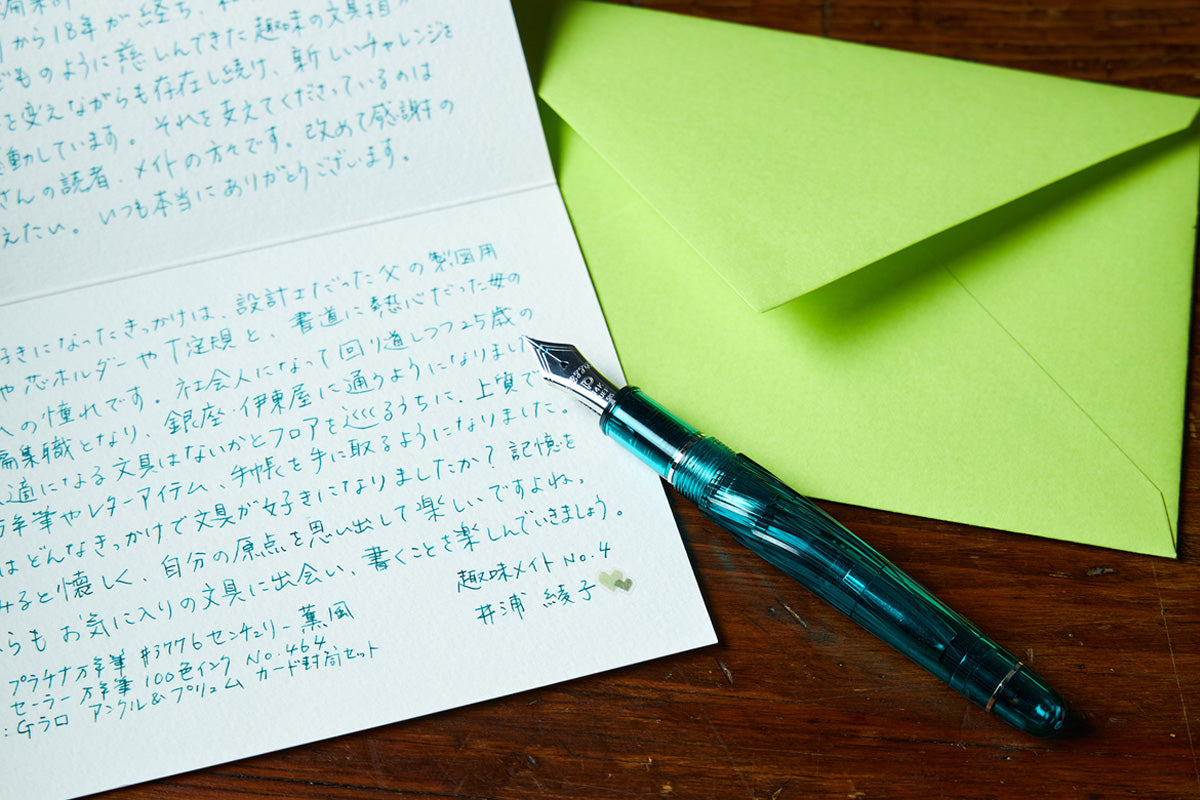 から18年が経ち、
どものように慈しんできた趣味の文具箱が
を変えながらも存在し続け、新しいチャレンジを
動しています。それを支えてくださっているのは
さんの読者、メイトの方々です。改めて感謝の
えたい。いつも本当にありがとうございます。
好きになったきっかけは、設計士だった父の製図用
や芯ホルダーやT定規と、書道に熱心だった母の
への憧れです。社会人になって回り道しつつ25歳の
編集職となり、銀座・伊東屋に通うようになりました
適になる文具はないかとフロアを巡るうちに、上質で
万年筆やレターアイテム、手帳を手に取るようになりました。
はどんなきっかけで文具が好きになりましたか?記憶を
みると懐しく、自分の原点を思い出して楽しいですよね。
らもお気に入りの文具に出会い、書くことを楽しんでいきましょう。
趣味メイトNo.4
井浦 綾子
プラチナ万年筆 #3776センチュリー 薫風
セーラー万年筆 100色インク No.464
:Gラロ アンクル&プリュム カード封筒セット